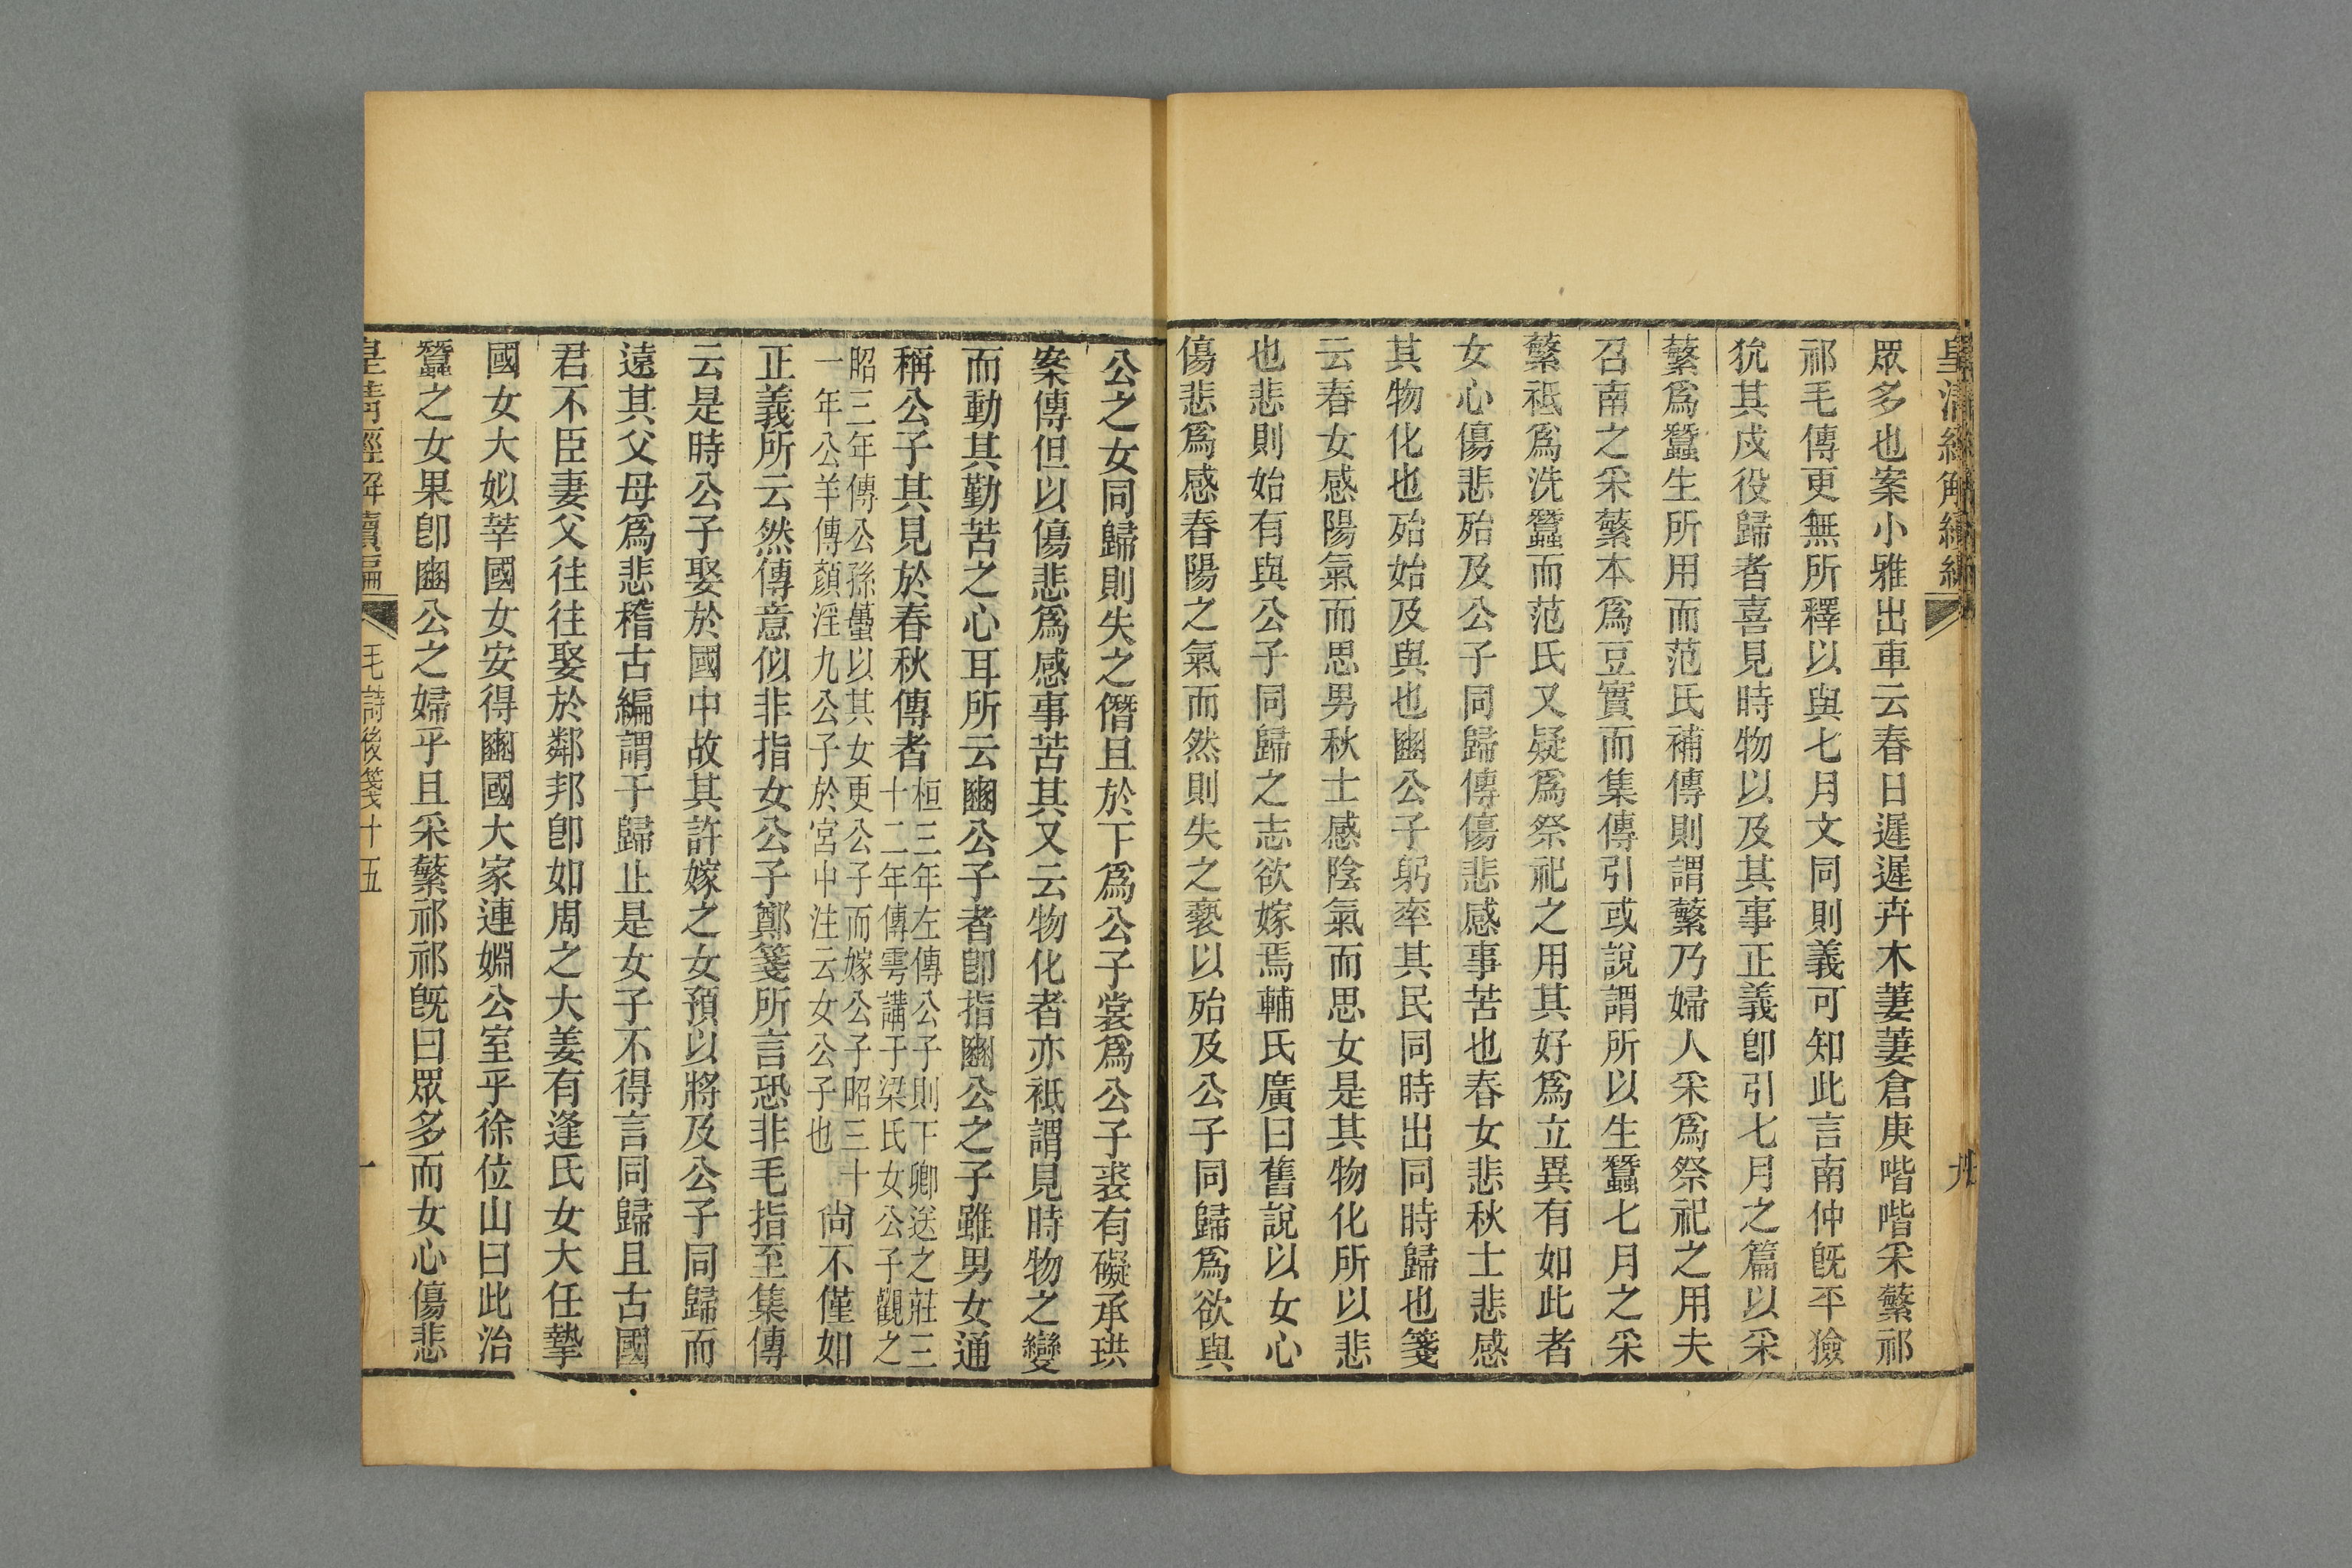 皇清經解續編
九
眾多也案小雅出車云春日遲遲卉木萋萋倉庚喈喈采蘩祁
祁毛傳更無所釋以與七月文同則義可知此言南仲旣平獫
狁其戍役歸者喜見時物以及其事正義卽引七月之篇以采
蘩爲蠶生所用而范氏補傳則謂蘩乃婦人采爲祭祀之用夫
召南之采蘩本爲豆實而集傳引或說謂所以生蠶七月之采
蘩祗爲洗蠶而范氏又疑爲祭祀之用其好爲立異有如此者
女心傷悲殆及公子同歸傳傷悲感事苦也春女悲秋士悲感
其物化也殆始及與也豳公子躬率其民同時出同時歸也箋
云春女感陽氣而思男秋士感陰氣而思女是其物化所以悲
也悲則始有與公子同歸之志欲嫁焉輔氏廣曰舊說以女心
傷悲爲感春陽之氣而然則失之褻以殆及公子同歸爲欲與
公之女同歸則失之僭且於下爲公子裳爲公子裘有礙承珙
案傳但以傷悲爲感事苦其又云物化者亦祗謂見時物之變
而動其勤苦之心耳所云豳公子者卽指豳公之子雖男女通
稱公子其見於春秋傳者桓三年左傳公子則下卿送之莊三
十二年傳雩講于梁氏女公子觀之
昭三年傳公孫蠆以其女更公子而嫁公子昭三十
一年公羊傳顏淫九公子於宮中注云女公子也尙不僅如
正義所云然傳意似非指女公子鄭箋所言恐非毛指至集傳
云是時公子娶於國中故其許嫁之女預以將及公子同歸而
遠其父母爲悲稽古編謂于歸止是女子不得言同歸且古國
君不臣妻父往往娶於鄰邦卽如周之大姜有逢氏女大任摯
國女大姒莘國女安得豳國大家連婣公室乎徐位山曰此治
蠶之女果卽豳公之婦乎且采蘩祁祁旣曰眾多而女心傷悲
皇清經解續編
毛詩後箋十五